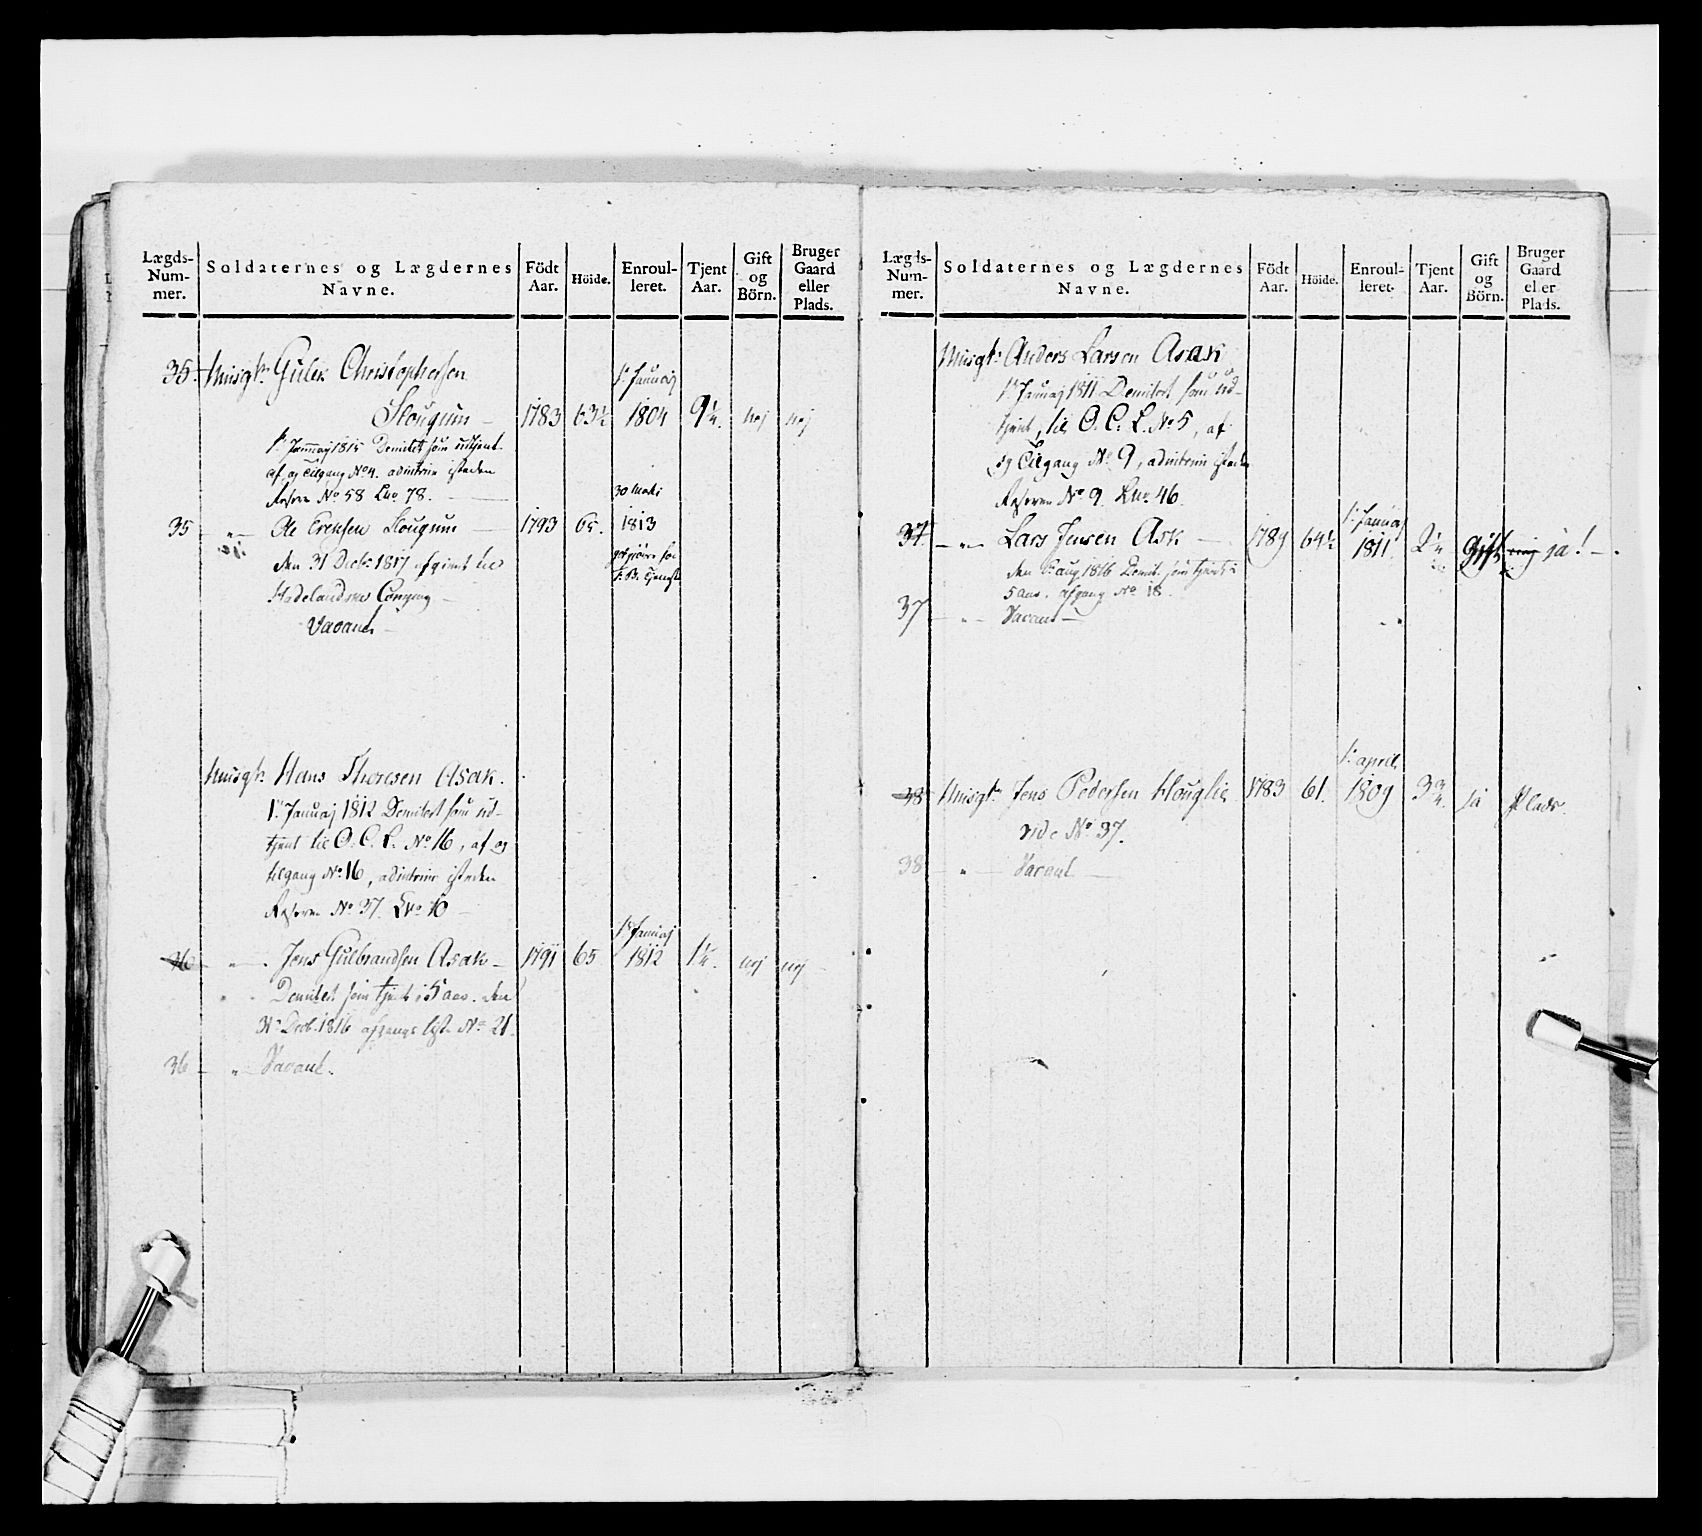 Lægds-Num-mer. Soldaternes og Lægdernes Navne. Födt Aar. Höide. Enroul-leret. Tjent Aar. Gift og Börn. Bruger Gaard eller Plads.
1e Januaj
35. Musqt: Gulek Christophersen
Slougum – 1783 63½ 1804 9¼. nej nej
1e Januaj 1815 Demitet som udtjent
af og tilgang No 4. adinterim isteden
Reserve No 58 Lno 78.
30 Marti
35 – „ – Ole Ereksen Slougum – 1793 65. 1813
den 31 Decbr 1817 afgivet til
Hadelandske Compag –
Vacant –
Musqt: Hans Thoresen Asak.
1e Januaj 1812 Demitert som ud-
tjent til O. C. L. No 16, af og
tilgang No 16, adinterim isteden
Reserve No 37. Lno 10
1e Januaj
36 – „ – Jens Gulbrandsen Asak – 1791 65 1812 1¼. nej nej
Demitert som tjent i 5 aar. den
31e Decb. 1816 afgangs liste No 21.
36 – „ – Vacant.
Lægds-Num-mer. Soldaternes og Lægdernes Navne. Födt Aar. Höide. Enroul-leret. Tjent Aar. Gift og Börn. Bruger Gaard eller Plads.
Musqt: Anders Larsen Asak
1e Januaj 1811 Demitert som ud-
tjent, til O. C. L. No 5, af
og tilgang No 9, adinterim isteden
Reserve No 9 Lno 46.
1e Januaj
37. – „ – Lars Jensen Ask – 1789 64½ 1811. 2¼ Gift ja! –
den 1e aug 1816 Demit. som tjent i
5 aar. afgang No 18.
37 – „ – Vacant –
1e april
38 Musqt: Jens Pedersen Houglie 1783 61. 1809 3¾. ja Plads.
vide No 37.
38 – „ – Vacant –